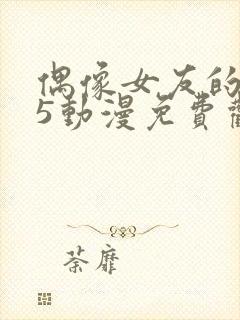 偶像女友的
5動漫免費
荼靡